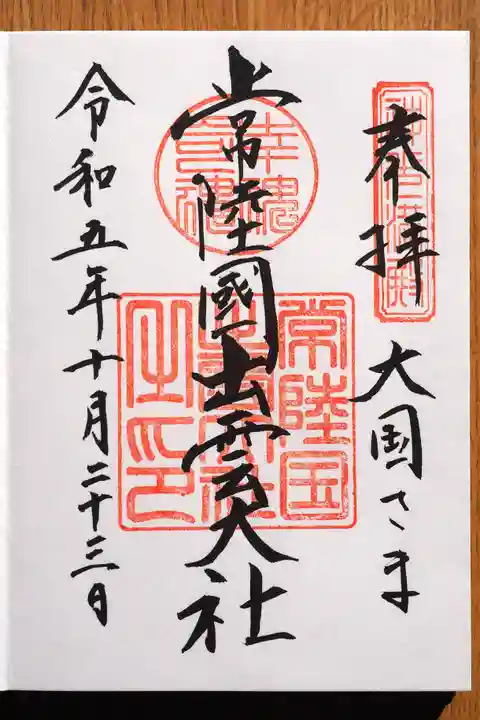 奉拝
大国さま
常陸國出雲大社
常陸国
出雲大社
之印
幸魂
奇魂
令和五年十月二十三日